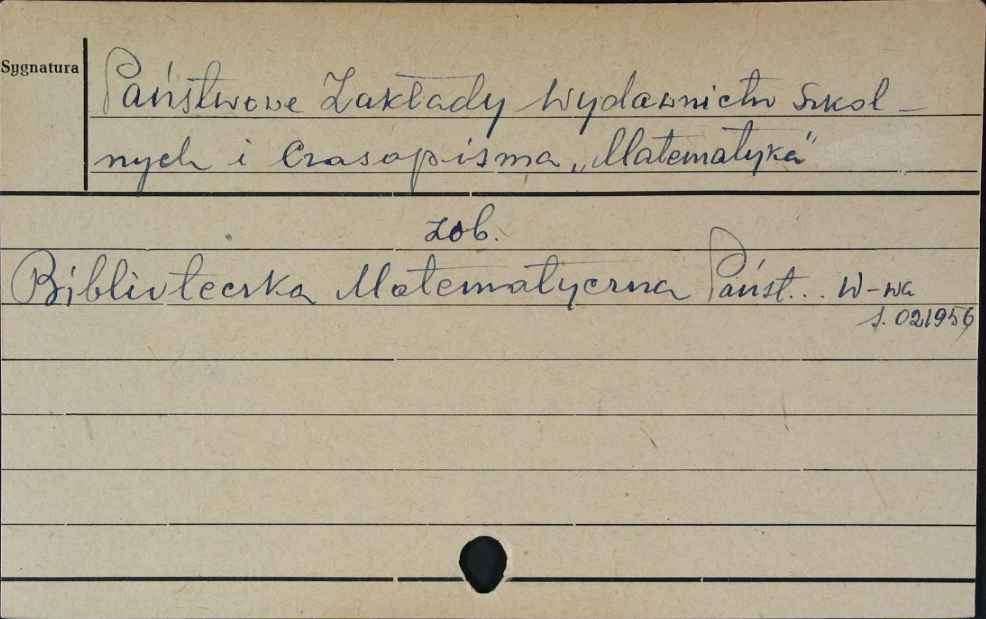 Sygnatura
Państwowe Zakłady Wydawnictw Szkol-
nych i Czasopisma „Matematyka"
zob.
Biblioteczka Matematyczna Państ... W-wa
s. 021956